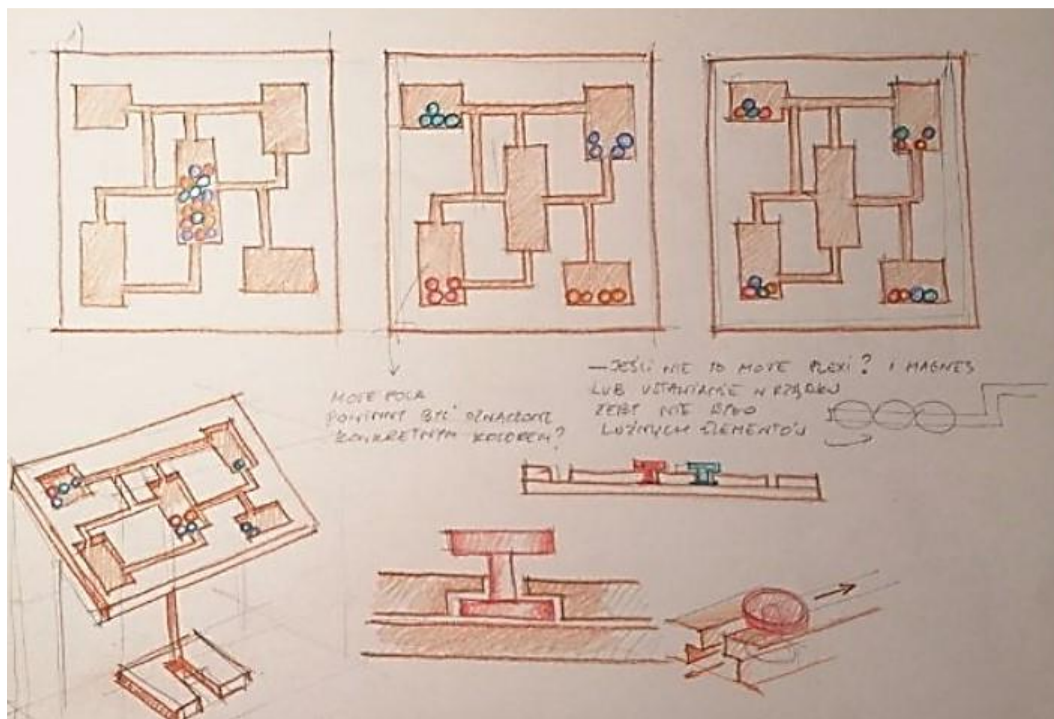 MOŻE POLA
POWINNY BYĆ OZNACZONE
KONKRETNYM KOLOREM?
— JEŚLI NIE TO MOŻE PLEXI? I MAGNES
LUB USTAWIANIE W RZĄDKU
ŻEBY NIE BYŁO
LUŹNYCH ELEMENTÓW